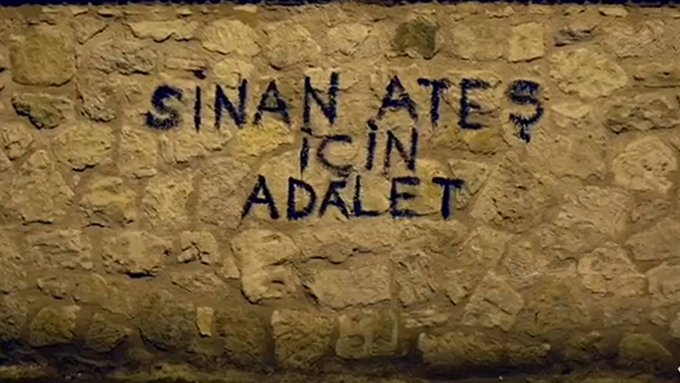 SINAN ATEŞ
İÇİN
ADALET